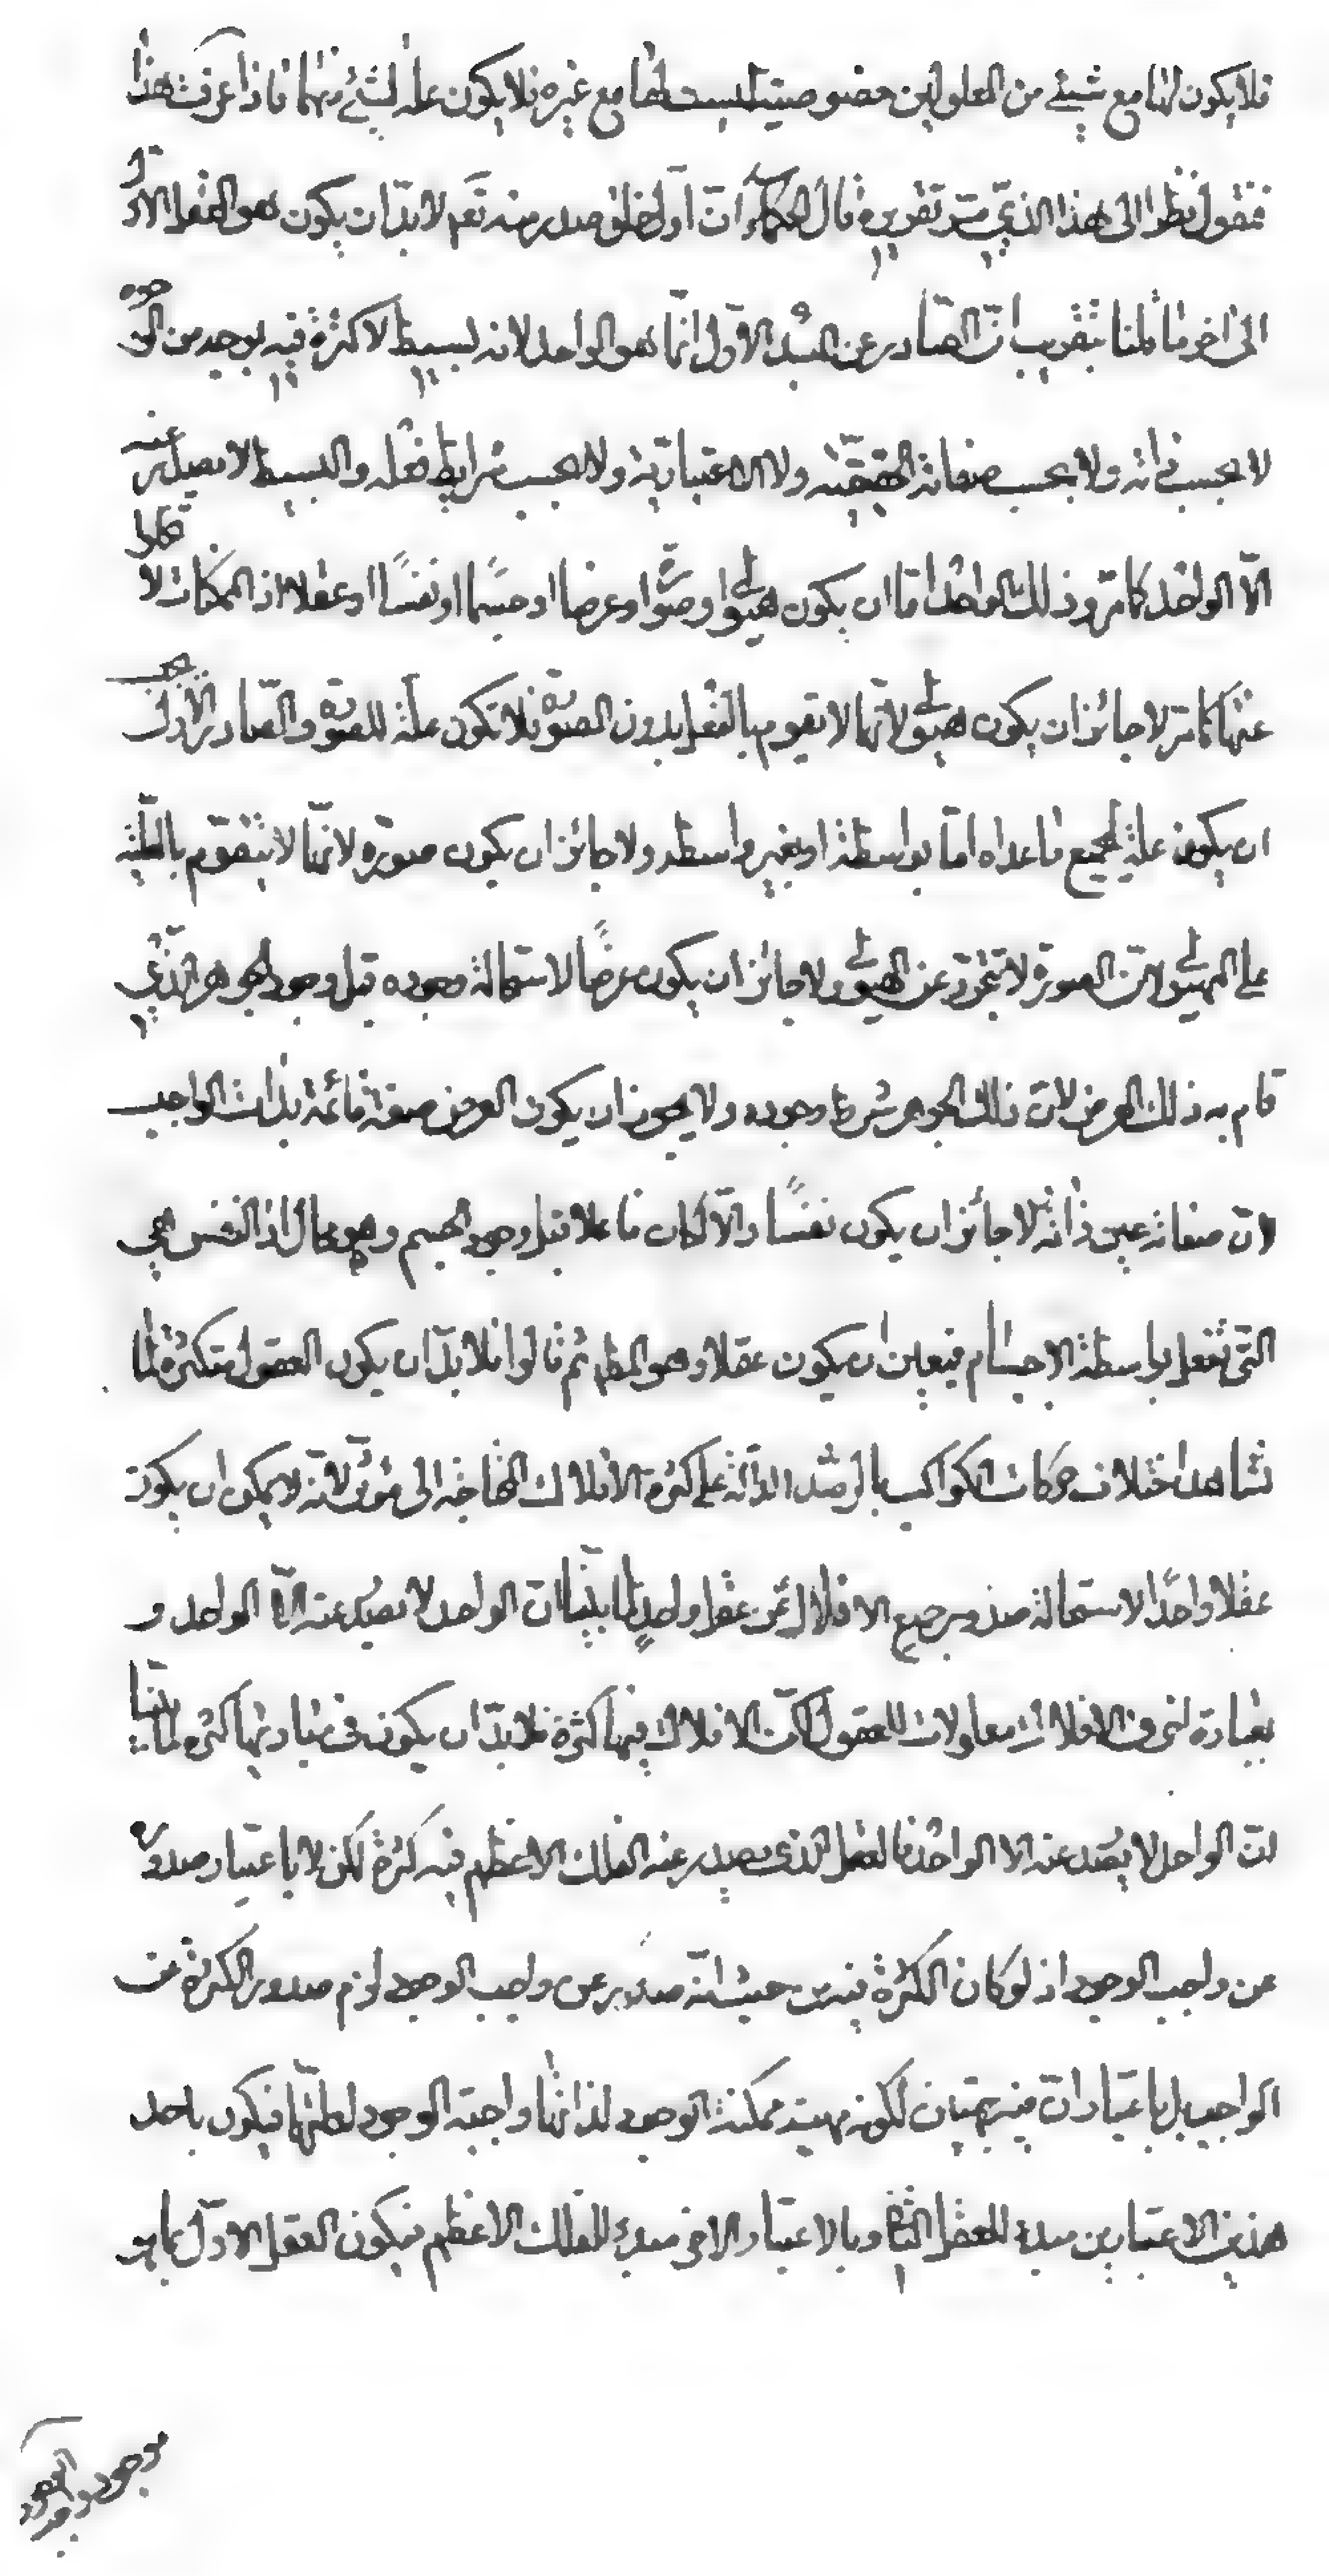 فلا يكون لها مع شيئ من المعلولين خصوصية ليست لها مع غيره فلا يكون علة لشيئ منهما فاذا عرفت هذا
فنقول نظرا الى هذا الذي مر تقريره قال الحكماء ان اول خلق صدر منه تعم لا بد ان يكون هو العقل الاول
الى اخر ما قلنا بتقريب ان الصادر عن المبدء الاول انما هو الواحد لانه بسيط لا كثرة فيه بوجه من الوجوه
لا بحسب ذاته ولا بحسب صفاته الحقيقية ولا الاعتبارية ولا بحسب شرايط فعله والبسيط لا يصدر عنه
الا الواحد كما مر وذلك الواحد اما ان يكون هيولى او صورة او عرضا او جسما او نفسا او عقلا اذ الممكنات لا تخلوا
عنها كما مر لا جائز ان يكون هيولى لانها لا تقوم بالفعل بدون الصورة فلا تكون علة للصورة والصادر الاول يجب
ان يكون علة لجميع ما عداه اما بواسطة او بغير واسطه ولا جائز ان يكون صورة لانها لا تتقوم بالعلية
على الهيولى لان الصورة لا تتجرد عن الهيولى ولا جائز ان يكون عرضا لاستحالة وجوده قبل وجود الجوهر الذي
قام به ذلك العرض لان ذلك الجوهر شرط وجوده ولا يجوز ان يكون العرض صفة قائمة بذات الواجب
لان صفاته عين ذاته ولا جائز ان يكون نفسا والا لكان فاعلا قبل وجود الجسم وهو محال اذ النفس هي
التي تفعل بواسطة الاجسام فيتعين ان يكون عقلا وهو المطلوب ثم قالوا فلا بد ان يكون العقول متكثرة لما
نشاهد اختلاف حركات الكواكب بالرصد الدالة على كثرة الافلاك المحتاجة الى مؤثر لانه لا يمكن ان يكون
عقلا واحدا لاستحالة صدور جميع الافلاك عن عقل واحد لما بينا ان الواحد لا يصدر عنه الا الواحد و
بعبارة اخرى الافلاك معلولات للعقول لكن الافلاك فيها كثرة فلا بد ان يكون في مباديها كثرة لما بينا
ان الواحد لا يصدر عنه الا الواحد فالعقل الذي يصدر عنه الفلك الاعظم فيه كثرة لكن لا باعتبار صدوره
عن واجب الوجود اذ لو كان الكثرة فيه من حيث انه صدر عن واجب الوجود لزم صدور الكثرة عن
الواجب بل باعتبار ان فيه جهتين لكونه مهية ممكنة الوجود لذاتها واجبة الوجود لعلتها فيكون باحد
هذين الاعتبارين مبدء للعقل الثاني وبالاعتبار الاخر مبدء للفلك الاعظم فيكون العقل الاول باعتبار